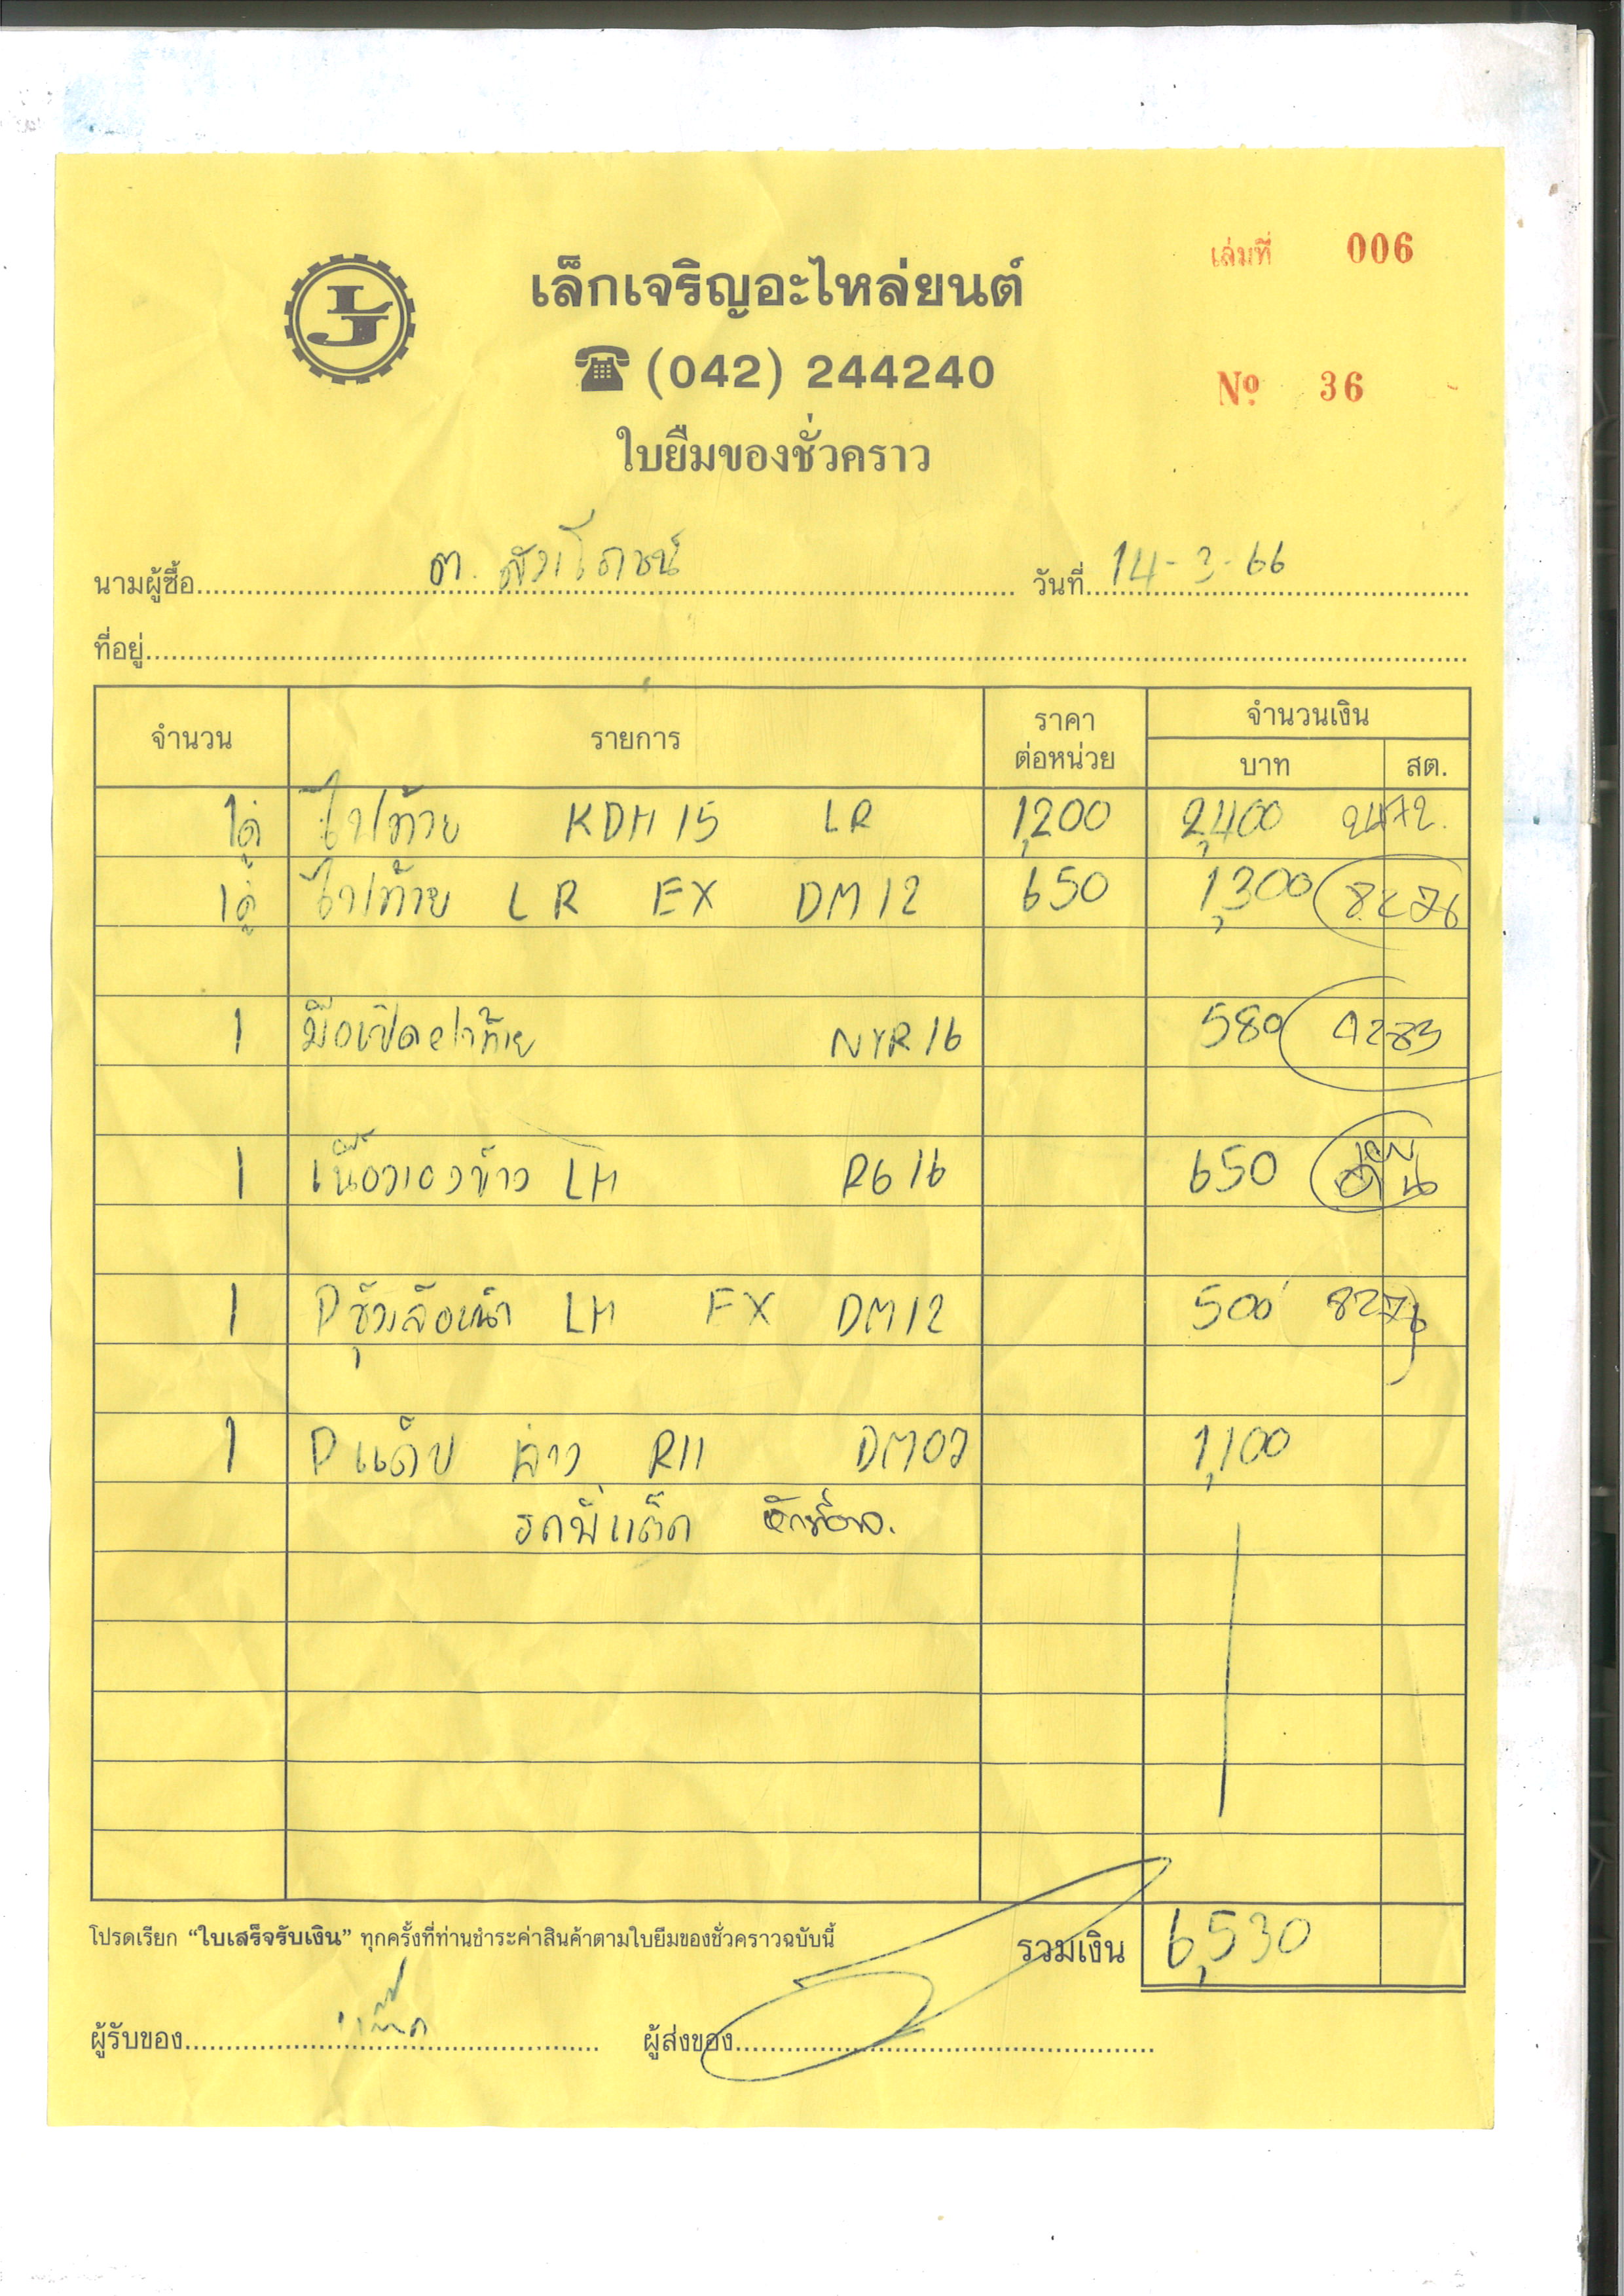 เล่มที่ 006
LJ
เล็กเจริญอะไหล่ยนต์
(042) 244240
Nº 36
ใบยืมของชั่วคราว
นามผู้ซื้อ ต. สังวโรจน์ วันที่ 14-3-66
ที่อยู่
จำนวน รายการ ราคาต่อหน่วย จำนวนเงิน
บาท สต.
1คู่ ไฟท้าย KDH15 LR 1,200 2,400 2472
1คู่ ไฟท้าย LR EX DM12 650 1,300 8276
1 มือเปิดฝาท้าย NYR16 580 9283
1 LH R616 650
1 LH EX DM12 500 8276
1 P RH DM02 1,100
รถพี่แต็ก
โปรดเรียก “ใบเสร็จรับเงิน” ทุกครั้งที่ท่านชำระค่าสินค้าตามใบยืมของชั่วคราวฉบับนี้
รวมเงิน 6,530
ผู้รับของ ผู้ส่งของ